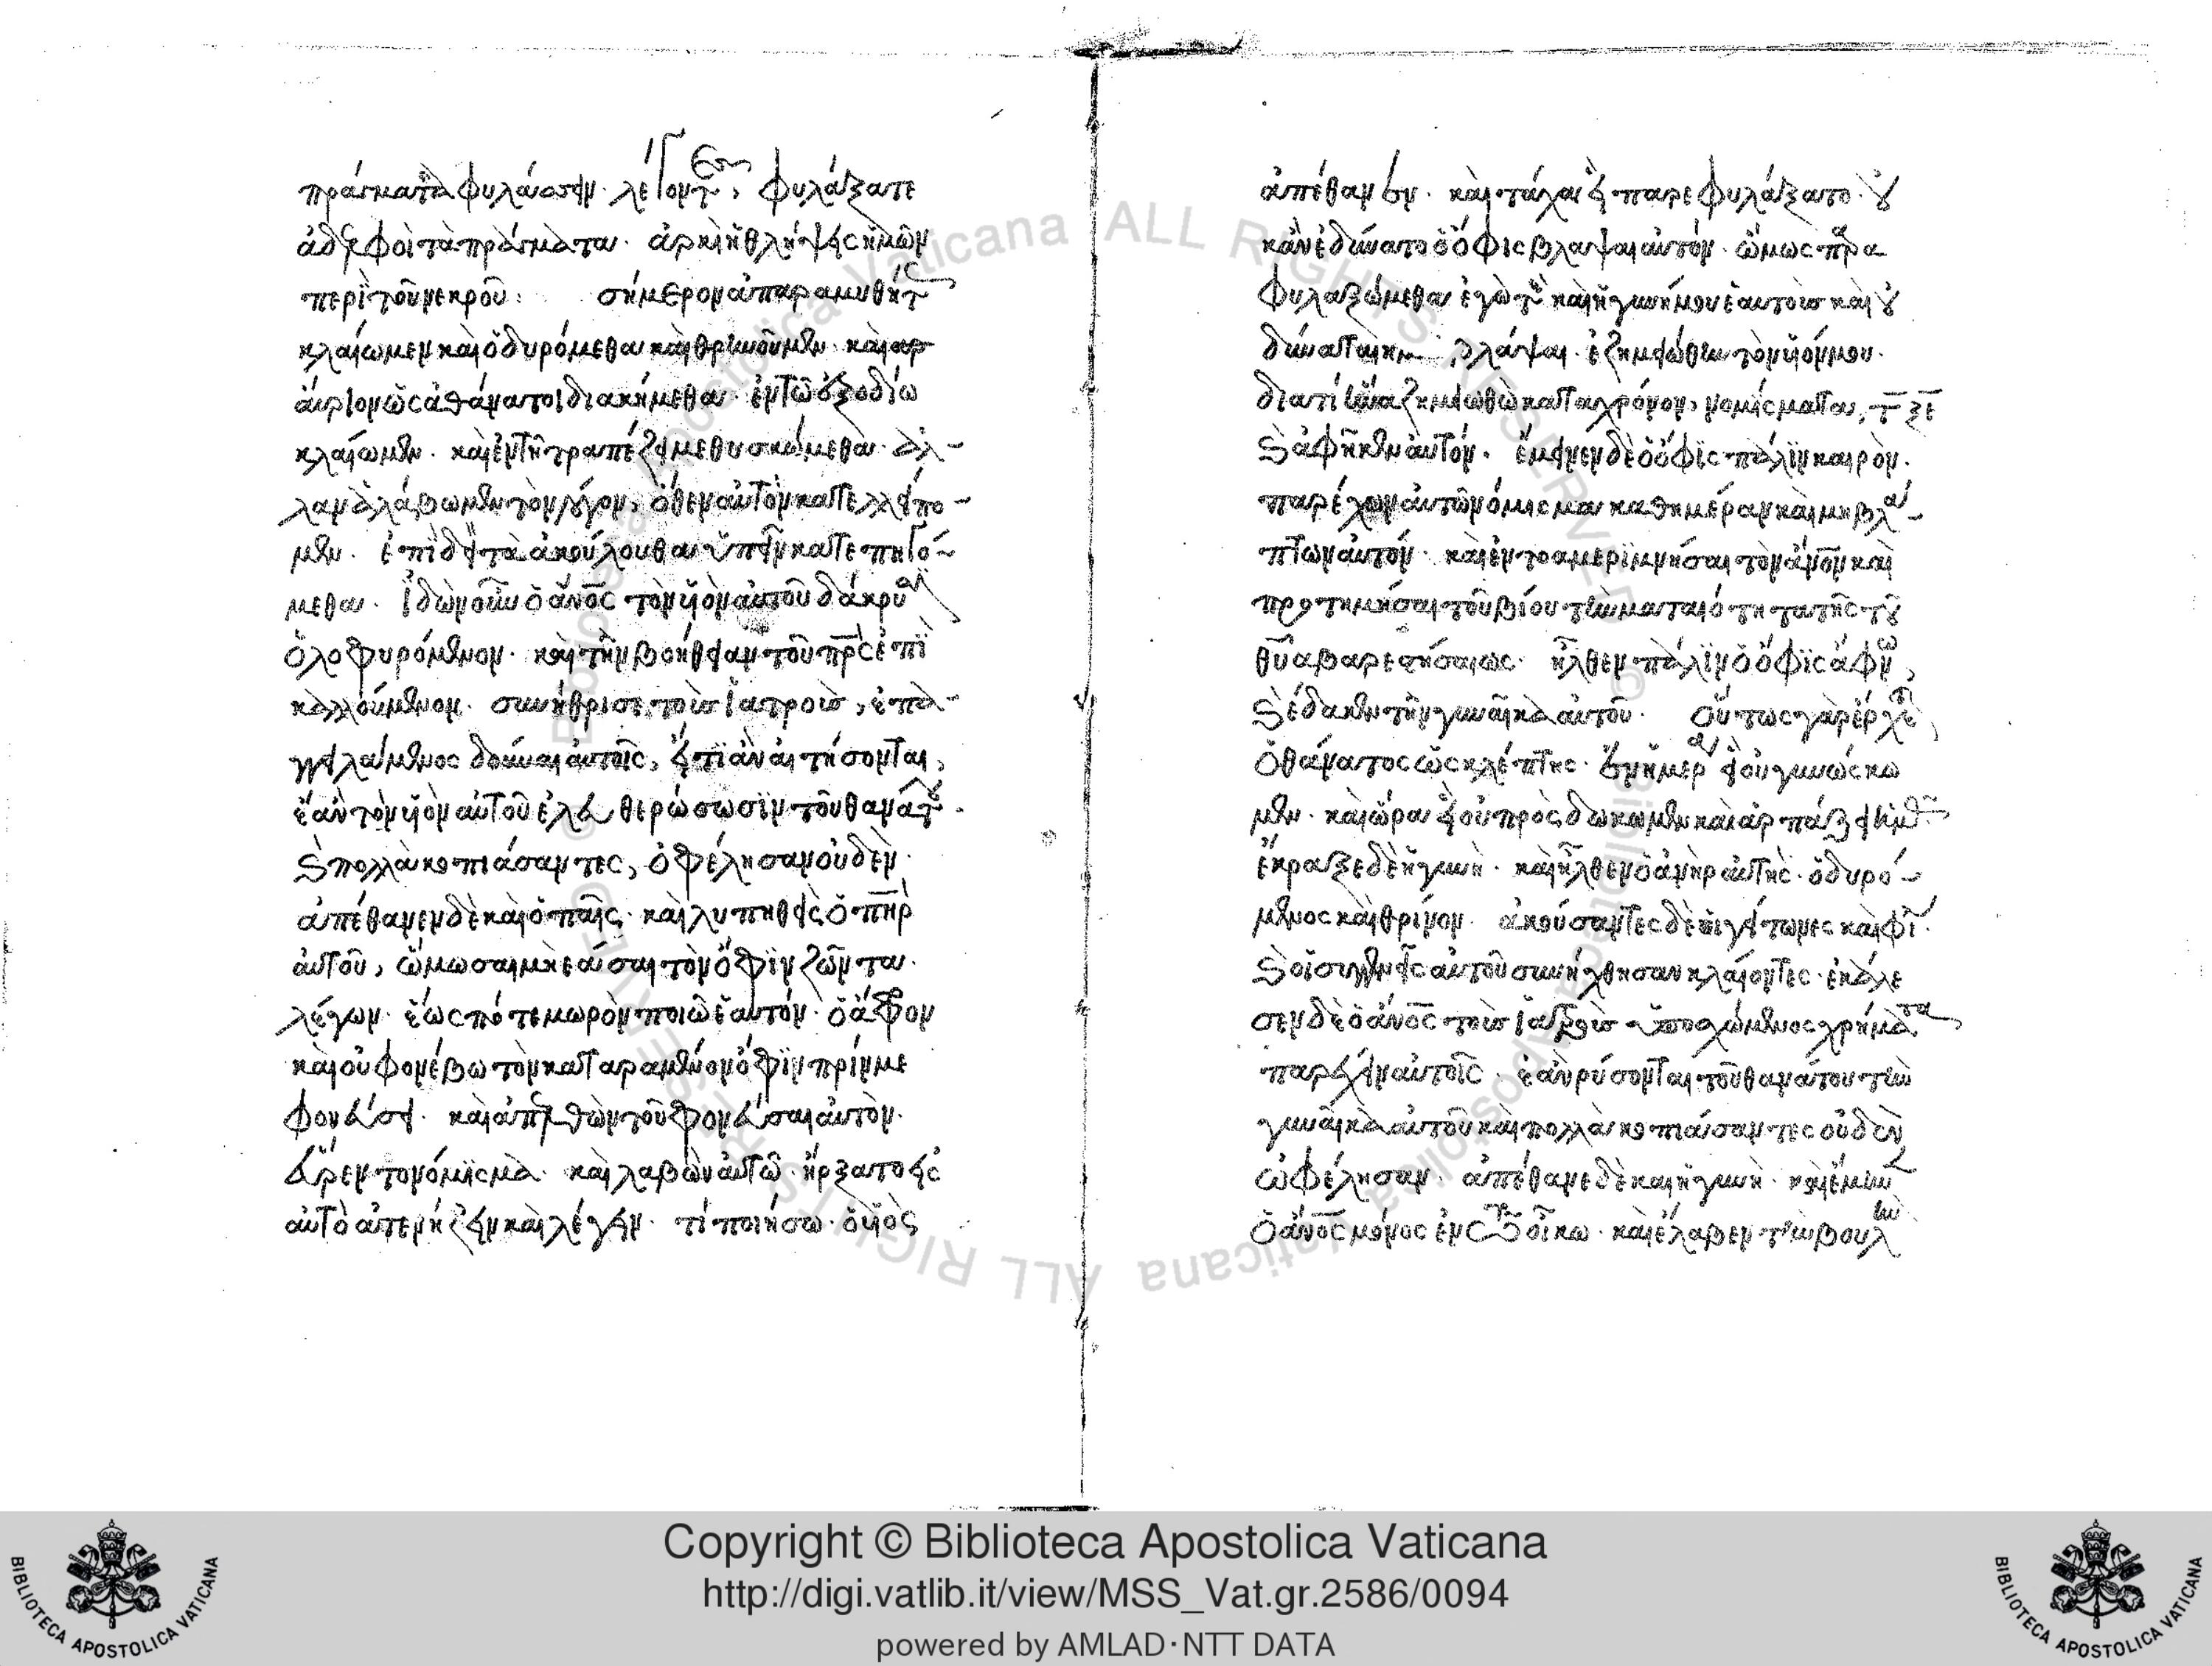 πράγματα φυλάσσειν. λέγοντες, φυλάξατε
ἀδελφοὶ τὰ πράγματα. ἀρκὴ ἡ θλήψις ἡμῶν
περὶ τοῦ νεκροῦ: σήμερον ἀπαραμυθήτ
κλαίωμεν καὶ ὀδυρόμεθα καὶ θρινοῦμεν. καὶ
αὔριον ὡς ἀθάνατοι διακήμεθα. ἐν τῶ ἐξοδίω
κλαίωμεν. καὶ ἐν τῆ τραπέζει μεθυσκώμεθα. ἀλ-
λὰν ἀλάβωμεν τὸν λόγον, ὅθεν αὐτὸν κατελλείπο-
μεν. ἐπὶ δὲ τὰ ἀκούλουθα
μεθα. ἰδὼν οὖν ὁ ἄνος τὸν υἱὸν αὐτοῦ δάκρυσι
ὀλοφυρόμενον. καὶ τὴν βοήθειαν τοῦ πρς ἐπὶ
καλλούμενον. συνήθρισε τοὺς ἰατροὺς, ἐπα-
γγειλάμενος δοῦναι αὐτοῖς, εἴ τι ἂν αιτήσονται,
ἐὰν τὸν υἱὸν αὐτοῦ ἐλευθερώσωσιν τοῦ θανάτου.
καὶ πολλὰ κοπιάσαντες, ὀφέλησαν οὐδὲν.
ἀπέθανεν δὲ καὶ ὁ παῖς. καὶ λυπηθεὶς ὁ πηρ
αὐτοῦ, ὤμωσαι μὴ ἐάσαι τὸν ὄφιν ζῶντα.
λέγων. ἕως πότε μωρὸν ποιῶ ἐαυτόν. ὁ ἄφρον
καὶ οὐ φονέβω τὸν καταραμένον ὄφιν πρίν με
φονεύσει. καὶ ἀπελθὼν τοῦ φονεῦσαι αὐτὸν.
εὗρεν το νόμισμα. καὶ λαβὼν αὐτῶ. ἤρξατο εἰς
αὐτὸ ἀτενήζειν καὶ λέγειν. τί ποιήσω. ὁ υἱός
ἀπέθανεν. καὶ τάχα οὐ παρεφυλάξατο. οὐ
κἂν ἐδύνατο ὁ ὄφις βλάψαι αὐτόν. ὤμως πρα
φυλαξώμεθα ἐγώ τε καὶ ἡ γυνή μου ἑαυτοὺς καὶ οὐ
δύναται βλάψαι. ἐζημιώθην τὸν υἱόν μου.
διατί ἵνα ζημιωθῶ κατὰ χρόνον, νομίσματα, τξε
καὶ ἀφῆκεν αὐτόν. ἔμεινεν δὲ ὁ ὄφις πάλιν καιρὸν.
παρέχων αὐτῶ νόμισμα καθημέραν καὶ μὴ βλά-
πτων αὐτόν. καὶ ἐν το αμεριμνήσαι τὸν ἄνον καὶ
προτιμήσαι τοῦ βίου τὴν ματαιότητα τῆς τοῦ
θυ αβαρεστήσαιως. ἦλθεν πάλιν ὁ ὄφις ἄφνω,
καὶ ἔδακεν τὴν γυναῖκα αὐτοῦ. οὕτως γὰρ ἔρχεται
ὁ θάνατος ὡς κλέπτης. ἐν ἡμέρα ἧ οὐ γινώσκω
μεν. καὶ ὥρα ἧ οὐ προσδωκωμεν καὶ ἁρπάζει ἡμᾶς
ἔκραξε δὲ ἡ γυνὴ. καὶ ἦλθεν ὁ ἀνὴρ αὐτῆς. ὀδυρό-
μενος καὶ θρινον. ἀκούσαντες δὲ οἱ γείτωνες καὶ φί
καὶ οἱ συγγενεῖς αὐτοῦ συνήχθησαν κλαίοντες. ἐκάλε
σεν δὲ ὁ ἄνος τοὺς ἰατροὺς ὑποσχώμενος χρήματα
παρέχειν αὐτοῖς. ἐὰν ρύσονται τοῦ θανάτου τὴν
γυναῖκα αὐτοῦ καὶ πολλὰ κοπιάσαντες οὐδὲν
ὠφέλησαν. ἀπέθανε δὲ καὶ ἡ γυνὴ. καὶ ἔμεινεν
ὁ ἄνος μόνος ἐν τῶ οἴκω. καὶ ἔλαβεν τὴν βουλὴν
Copyright © Biblioteca Apostolica Vaticana
http://digi.vatlib.it/view/MSS_Vat.gr.2586/0094
powered by AMLAD·NTT DATA